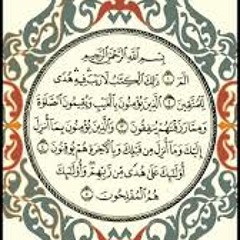 بِسْمِ اللَّهِ الرَّحْمَٰنِ الرَّحِيمِ
الٓمٓ ۝١ ذَٰلِكَ الْكِتَٰبُ لَا رَيْبَ فِيهِ هُدًى
لِّلْمُتَّقِينَ ۝٢ الَّذِينَ يُؤْمِنُونَ بِالْغَيْبِ وَيُقِيمُونَ الصَّلَوٰةَ
وَمِمَّا رَزَقْنَٰهُمْ يُنفِقُونَ ۝٣ وَالَّذِينَ يُؤْمِنُونَ بِمَآ أُنزِلَ
إِلَيْكَ وَمَآ أُنزِلَ مِن قَبْلِكَ وَبِالْءَاخِرَةِ هُمْ يُوقِنُونَ ۝٤
أُو۟لَٰٓئِكَ عَلَىٰ هُدًى مِّن رَّبِّهِمْ وَأُو۟لَٰٓئِكَ
هُمُ الْمُفْلِحُونَ ۝٥